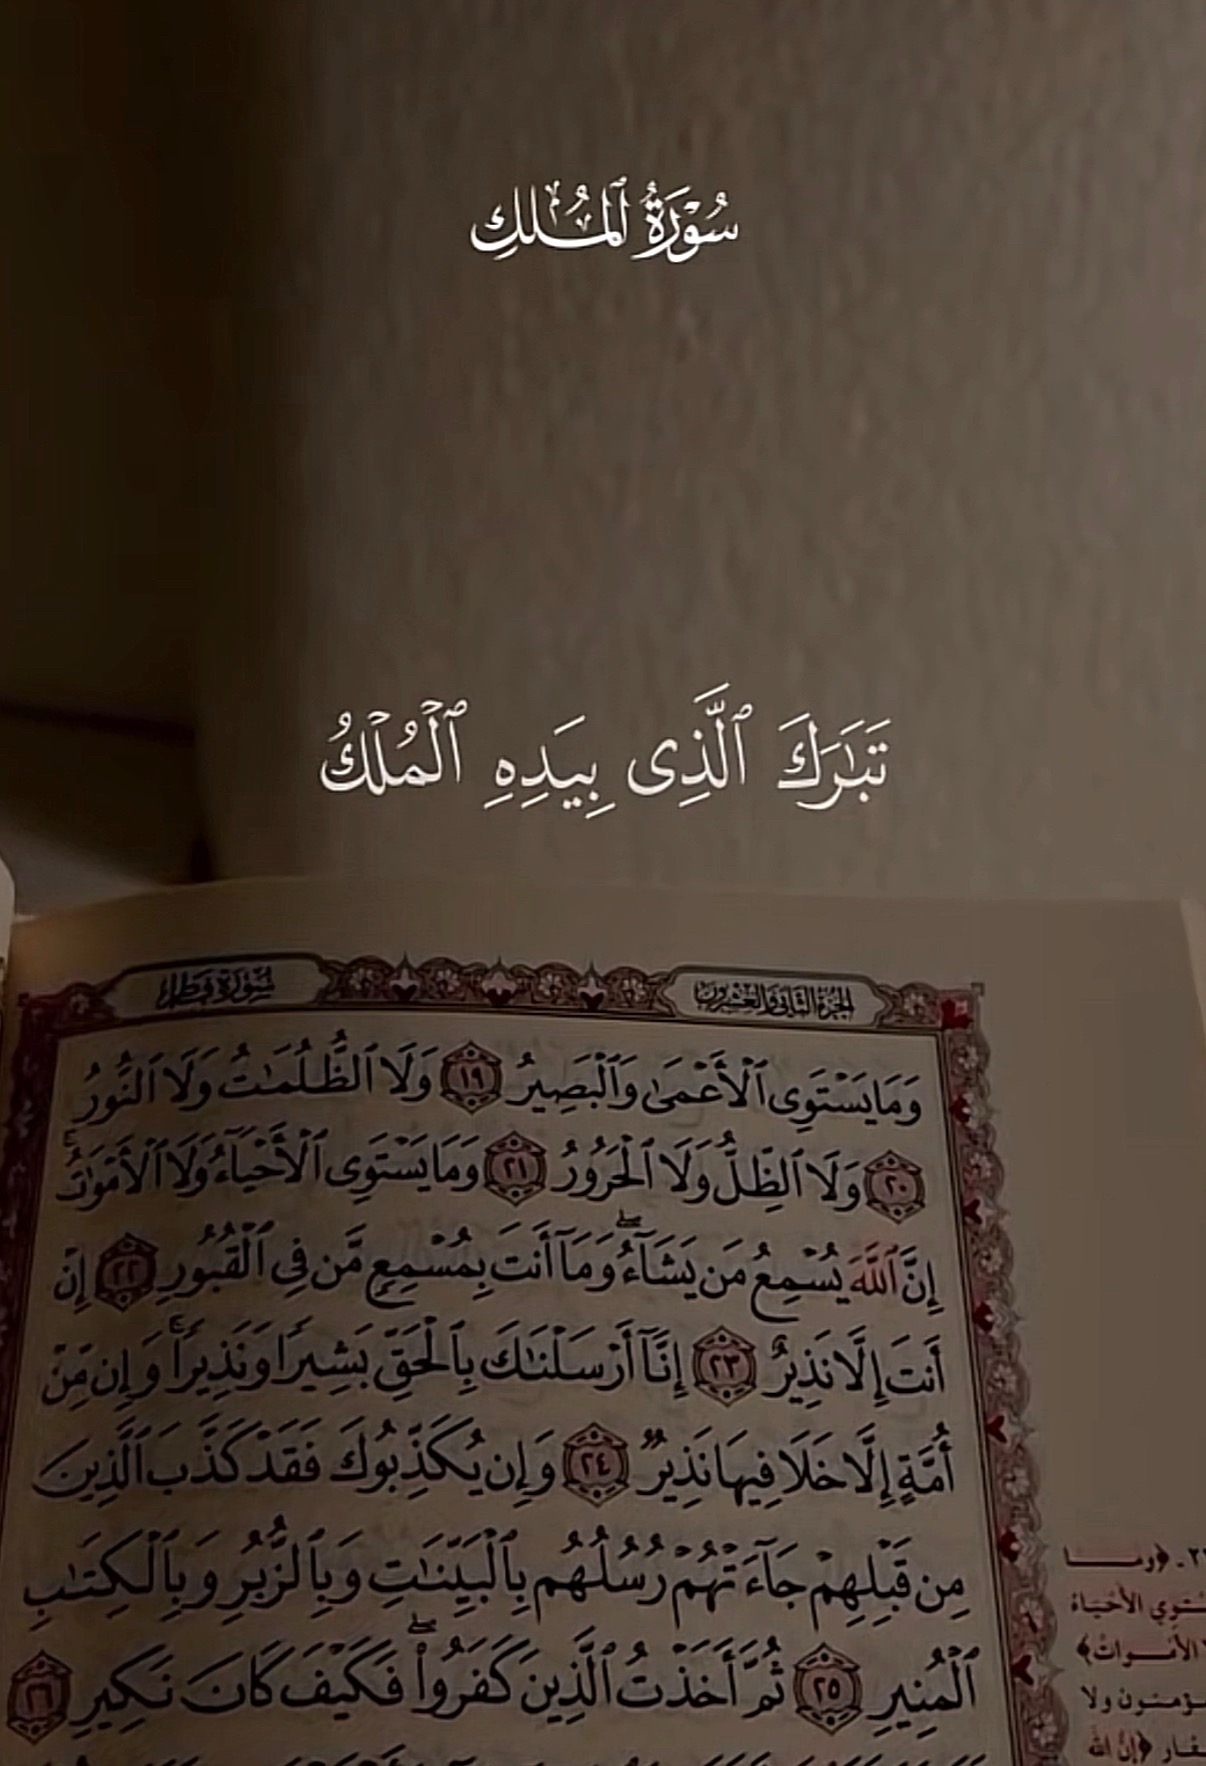 سُوْرَةُ ٱلْمُلْكِ
تَبَٰرَكَ ٱلَّذِى بِيَدِهِ ٱلْمُلْكُ
الجزء الثاني والعشرون
سورة فاطر
وَمَا يَسْتَوِى ٱلْأَعْمَىٰ وَٱلْبَصِيرُ ١٩ وَلَا ٱلظُّلُمَٰتُ وَلَا ٱلنُّورُ
٢٠ وَلَا ٱلظِّلُّ وَلَا ٱلْحَرُورُ ٢١ وَمَا يَسْتَوِى ٱلْأَحْيَآءُ وَلَا ٱلْأَمْوَٰتُۚ
إِنَّ ٱللَّهَ يُسْمِعُ مَن يَشَآءُۖ وَمَآ أَنتَ بِمُسْمِعٍ مَّن فِى ٱلْقُبُورِ ٢٢ إِنْ
أَنتَ إِلَّا نَذِيرٌ ٢٣ إِنَّآ أَرْسَلْنَٰكَ بِٱلْحَقِّ بَشِيرًا وَنَذِيرًاۚ وَإِن مِّنْ
أُمَّةٍ إِلَّا خَلَا فِيهَا نَذِيرٌ ٢٤ وَإِن يُكَذِّبُوكَ فَقَدْ كَذَّبَ ٱلَّذِينَ
مِن قَبْلِهِمْ جَآءَتْهُمْ رُسُلُهُم بِٱلْبَيِّنَٰتِ وَبِٱلزُّبُرِ وَبِٱلْكِتَٰبِ
ٱلْمُنِيرِ ٢٥ ثُمَّ أَخَذْتُ ٱلَّذِينَ كَفَرُوا۟ۖ فَكَيْفَ كَانَ نَكِيرِ ٢٦
﴿وما
الأحياء
الأموات﴾
ولا
﴿إن الله